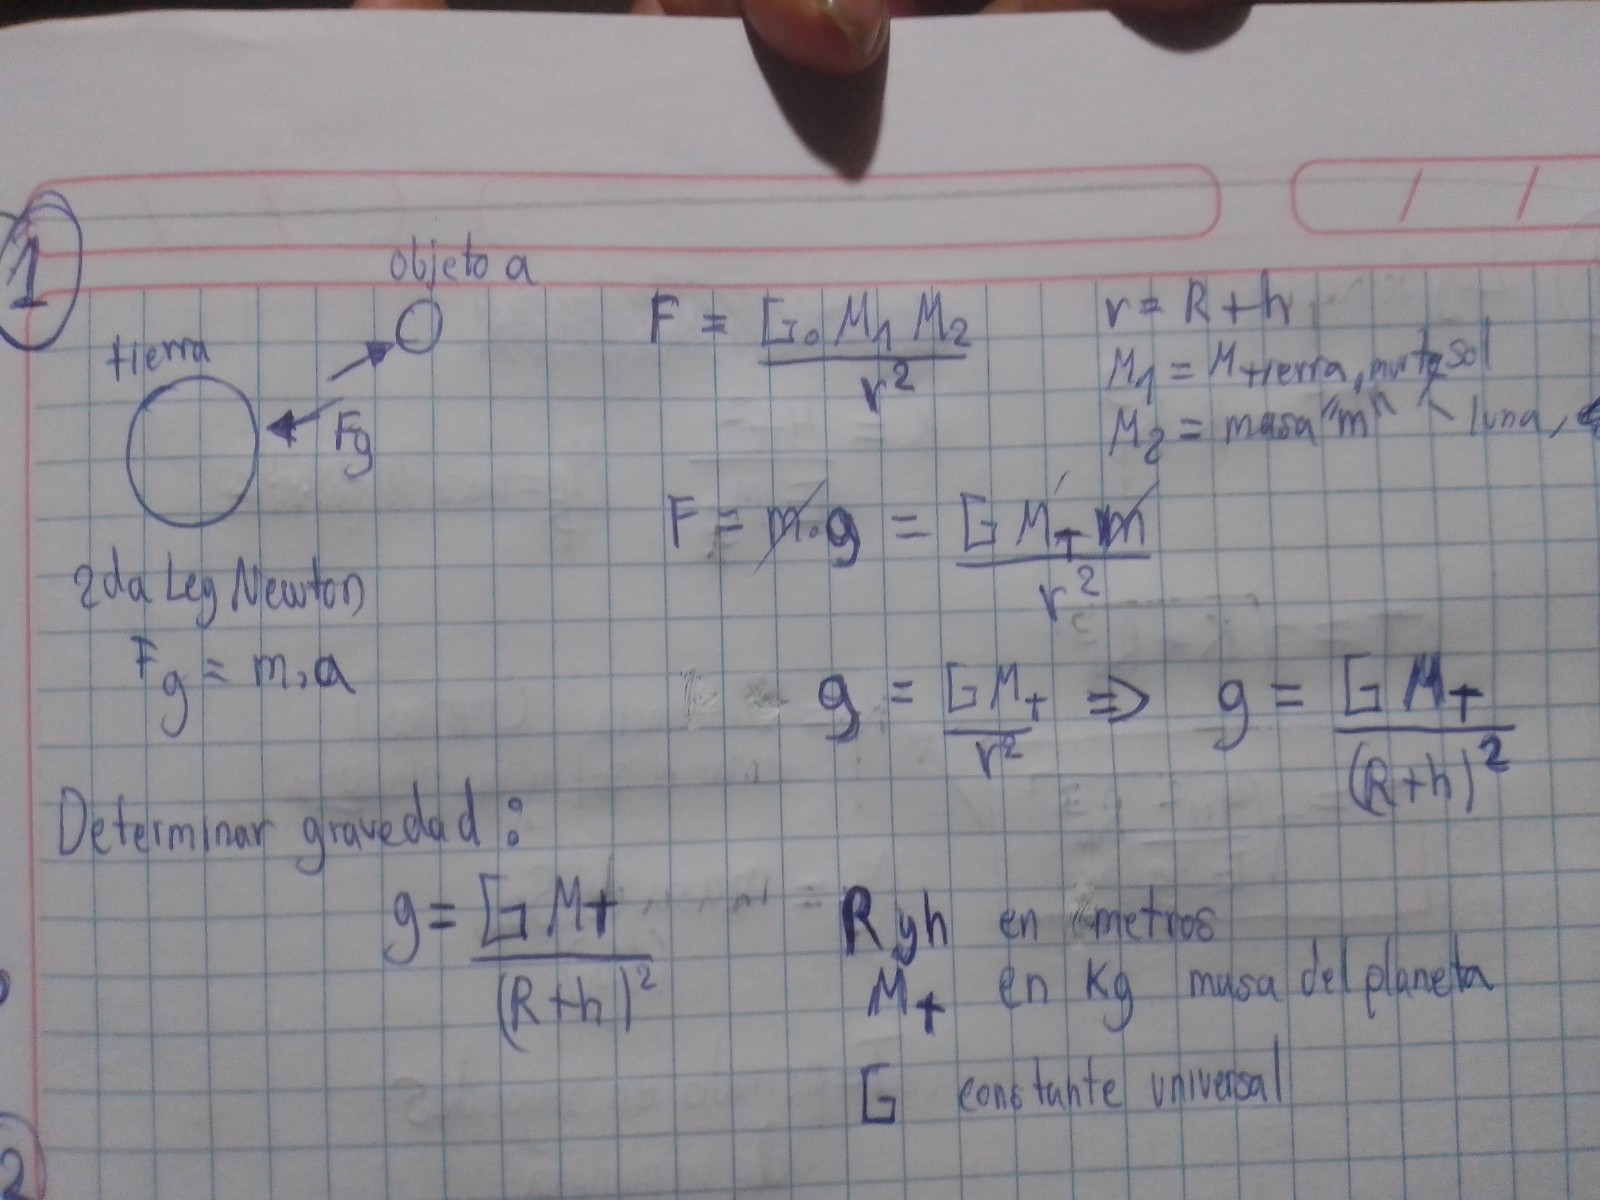 1
objeto a
tierra
Fg
2da Ley Newton
Fg = m.a
F = G. M1 M2 / r²
r = R + h
M1 = M tierra, marte, sol
M2 = masa "m" luna,
F = m.g = G M+ m / r²
g = G M+ / r² ⇒ g = G M+ / (R+h)²
Determinar gravedad:
g = G M+ / (R+h)²
R y h en metros
M+ en Kg masa del planeta
G constante universal
2